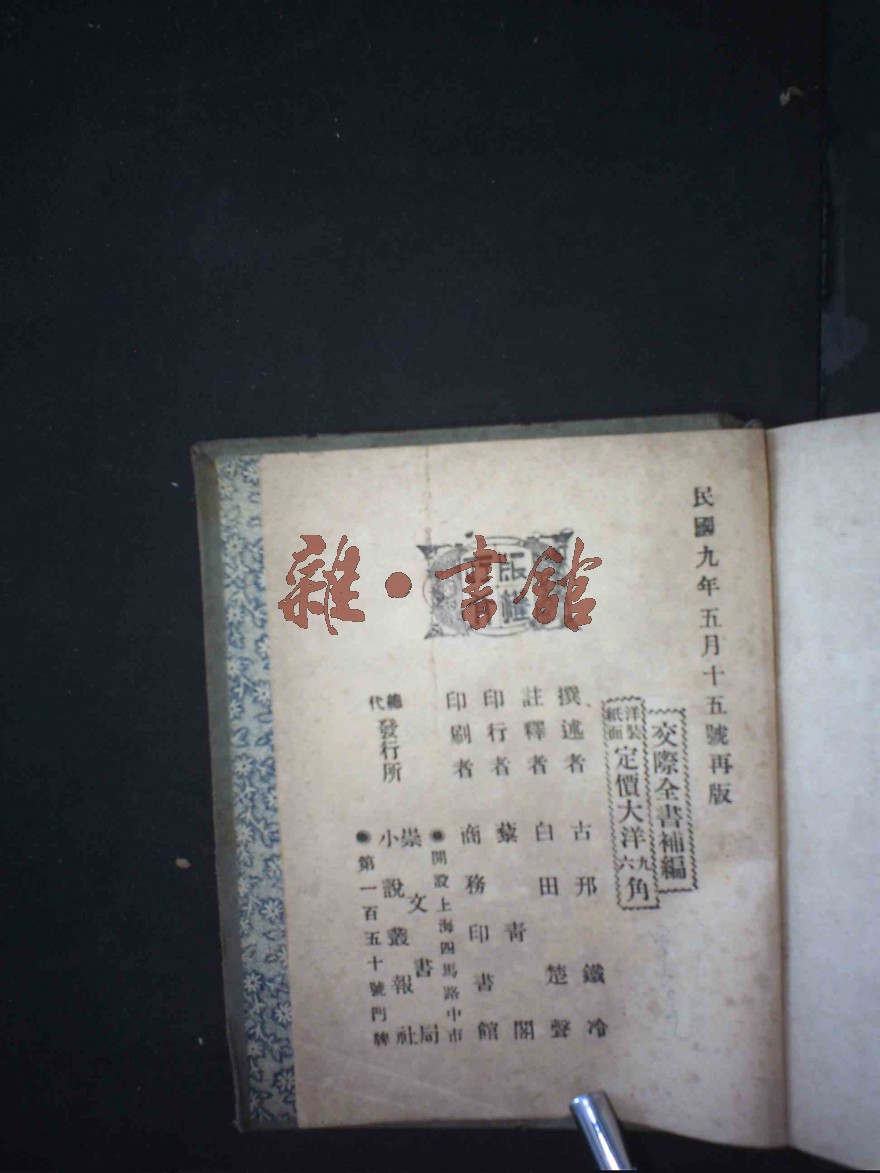 民國九年五月十五號再版
交際全書補編
洋裝
紙面
定價大洋
九
六
角
撰述者 古邗 鐵冷
註釋者 白田 楚聲
印行者 藜青閣
印刷者 商務印書館
●開設上海四馬路中市
總代發行所
崇文書局
小說叢報社
●第一百五十號門牌
雜·書館
版權